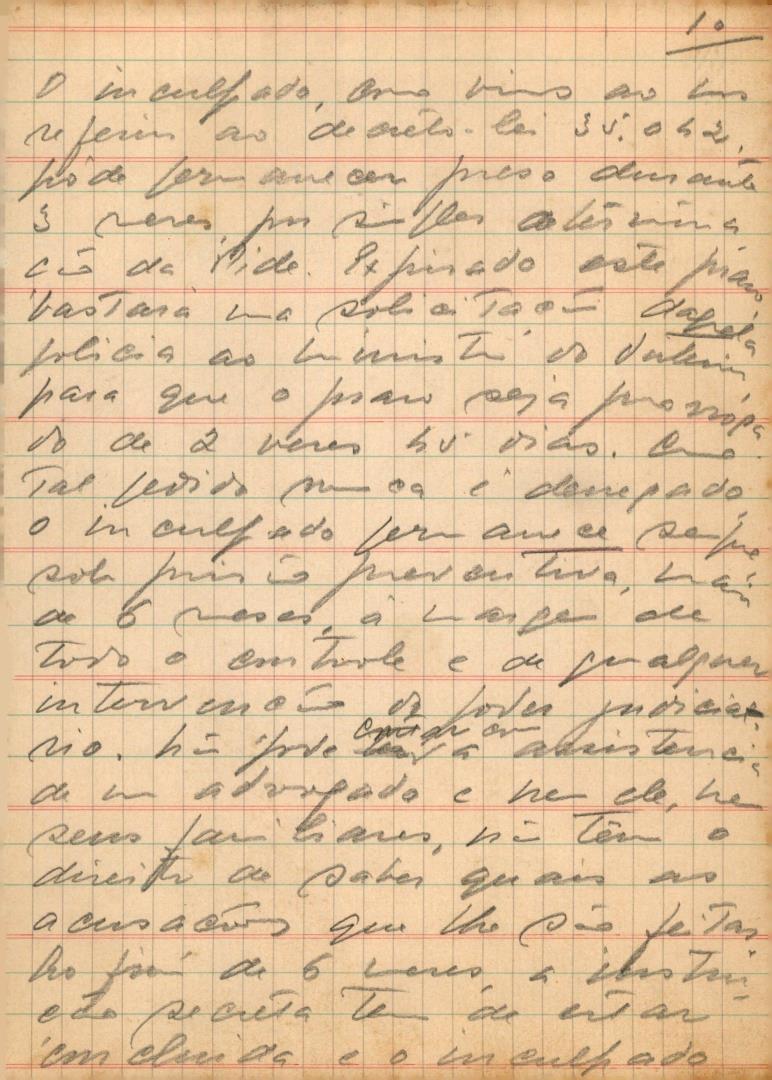 10
O inculpado, como vimos ao nos
referir ao decreto-lei 35.042,
pôde permanecer preso durante
3 meses, por simples determina
ção da Pide. Expirado este prazo,
bastará uma solicitação daquela
policia ao ministro do Interior,
para que o prazo seja prorroga
do de 2 vezes 45 dias. Como
tal pedido nunca é denegado,
o inculpado permanece sempre
sob prisão preventiva, mais
de 6 meses, à margem de
todo o controle e de qualquer
intervenção do poder judiciá-
rio. Não pode contar com a assistencia
de um advogado e nem ele, nem
seus familiares, não têm o
direito de saber quais as
acusações que lhe são feitas
Ao fim de 6 meses, a instru-
ção secreta tem de estar
concluida e o inculpado